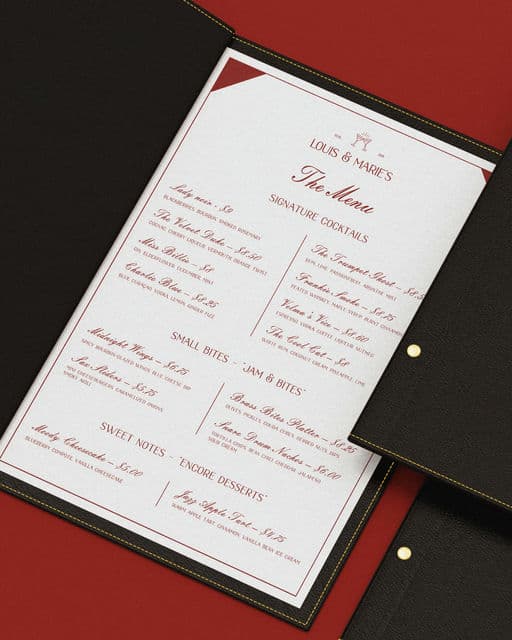 LOUIS & MARIE'S
The Menu
SIGNATURE COCKTAILS
Lady noir - $9
BLACKBERRIES, BOURBON, SMOKED ROSEMARY
The Velvet Duke – $8.50
COGNAC, CHERRY LIQUEUR, VERMOUTH, ORANGE TWIST
Miss Billie – $8
GIN, ELDERFLOWER, CUCUMBER, MINT
Charlie Blue – $8.25
BLUE CURAÇAO, VODKA, LEMON, GINGER FIZZ
The Trumpet Burst –
RUM, LIME, PASSIONFRUIT, ABSINTHE MIST
Frankie Smoke – $8.75
PEATED WHISKEY, MAPLE SYRUP, BURNT CINNAMON
Velma's Vice – $8.60
ESPRESSO, VODKA, COFFEE LIQUEUR, NUTMEG
The Cool Cat – $8
WHITE RUM, COCONUT CREAM, PINEAPPLE, LIME
SMALL BITES – "JAM & BITES"
Midnight Wings – $6.75
SPICY BOURBON-GLAZED WINGS, BLUE CHEESE DIP
Sax Sliders – $5.75
MINI CHEESEBURGERS, CARAMELIZED ONIONS,
SMOKY AIOLI
Brass Bites Platter – $8.25
OLIVES, PICKLES, GOUDA CUBES, SPICED NUTS, DIPS
Snare Drum Nachos – $6.00
TORTILLA CHIPS, BEAN CHILI, CHEDDAR, JALAPEÑO,
SOUR CREAM
SWEET NOTES – "ENCORE DESSERTS"
Moody Cheesecake – $5.00
BLUEBERRY COMPOTE, VANILLA CHEESECAKE
Jazz Apple Tart – $4.75
WARM APPLE TART, CINNAMON, VANILLA BEAN ICE CREAM